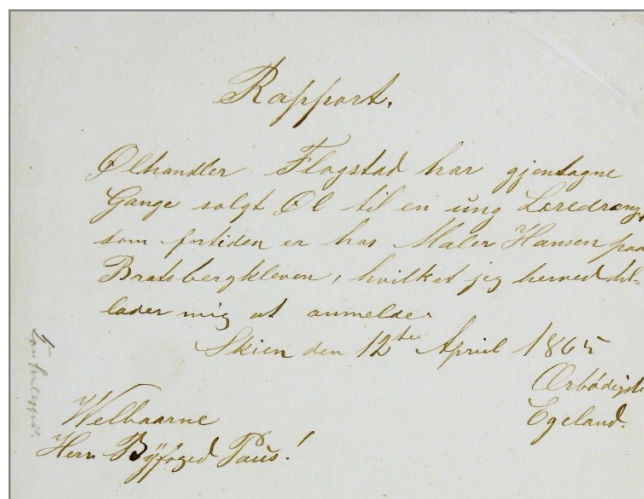 Rapport.
Ølhandler Flogstad har gjentagne
Gange solgt Øl til en ung Læredreng,
som fortiden er hos Maler Hansen paa
Bratsbergkleven, hvilket jeg herved til-
lader mig at anmelde.
Skien den 12te April 1865
Ærbødigst
Egeland.
Welbaarne
Herr Byfoged Paus!